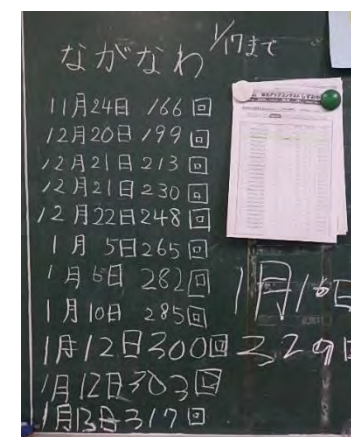 ながなわ 1/17まで
11月24日 166回
12月20日 199回
12月21日 213回
12月21日 230回
12月22日 248回
1月 5日 265回
1月 6日 282回
1月10日 285回
1月12日 300回
1月12日 303回
1月13日 317回
1月16日
329回